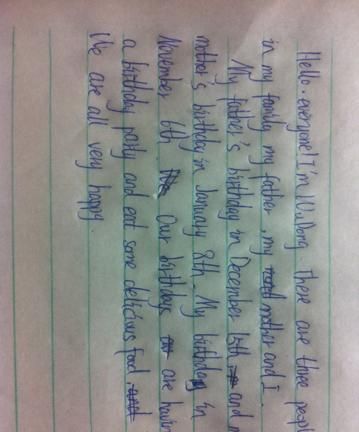 Hello, everyone! I'm Wu Dong. There are three peopl
in my family, my father, my mother and I.
My father's birthday in December 15th, and m
mother's birthday in January 8th. My birthday in
November 6th. Our birthdays are havin
a birthday party and eat some delicious food.
We are all very happy.